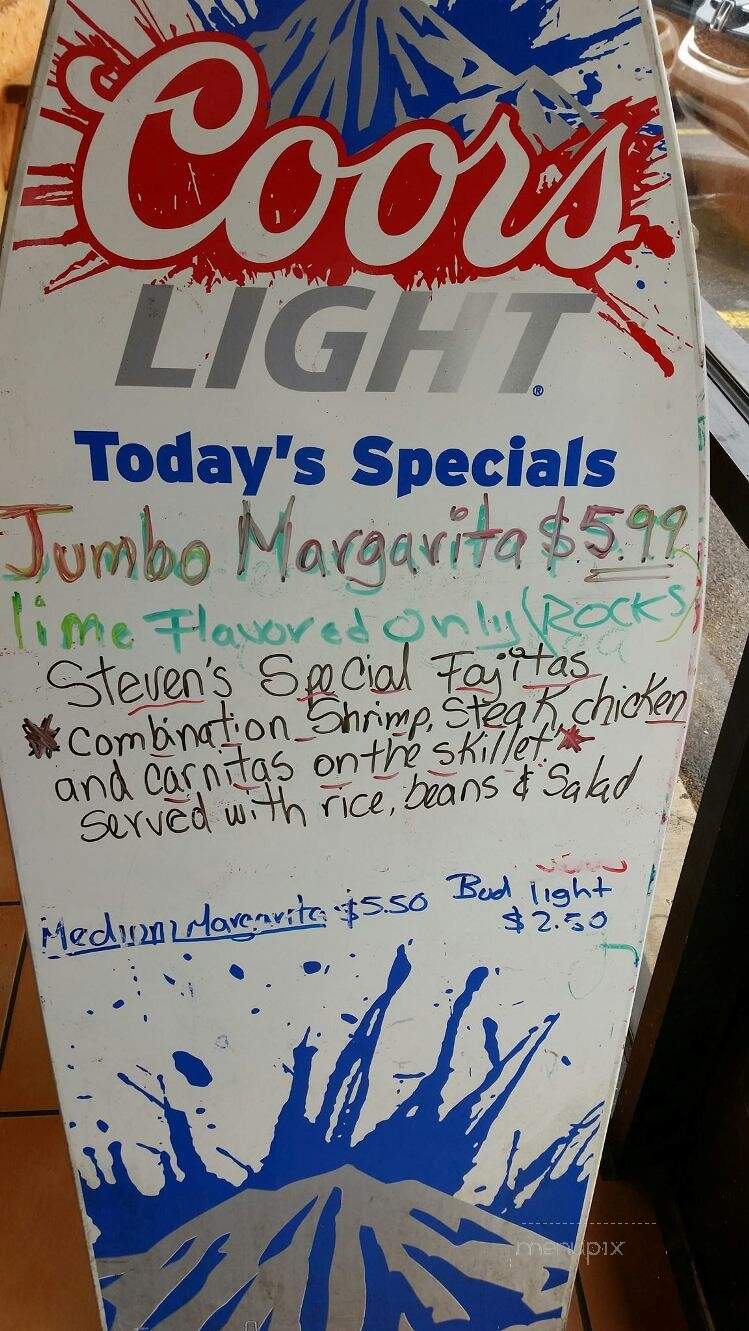 Coors
LIGHT®
Today's Specials
Jumbo Margarita $5.99
lime Flavored Only (ROCKS
Steven's Special Fajitas
* Combination Shrimp, Steak, chicken
and carnitas on the skillet *
served with rice, beans & Salad
Medium Margarita $5.50
Bud light
$2.50
menupix